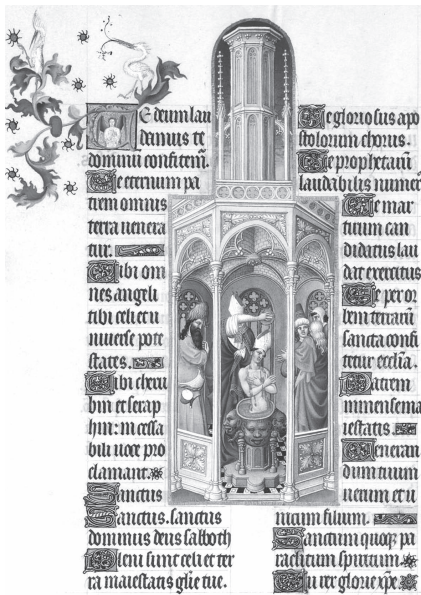 Te deum lau
damus te
dominū confitem̄.
Te eternum pa
trem omnis
terra uenera
tur.
Tibi om
nes angeli
tibi celi et u
niuerse pote
states.
Tibi cheru
bin et serap
hin: in cessa
bili uoce pro
clamant.
Sanctus
Sanctus. sanctus
dominus deus sabboth
Pleni sunt celi et ter
ra maiestatis gl̄ie tue.
Te gloriosus apo
stolorum chorus.
Te prophetarū
laudabilis numer
Te mar
tirum can
didatus lau
dat exercitus
Te per or
bem terrarū
sancta confi
tetur ecclīa.
Patrem
immense ma
iestatis.
Veneran
dum tuum
uerum et u
nicum filium.
Sanctum quoq; pa
raclitum spiritum
Tu rex glorie xp̄e